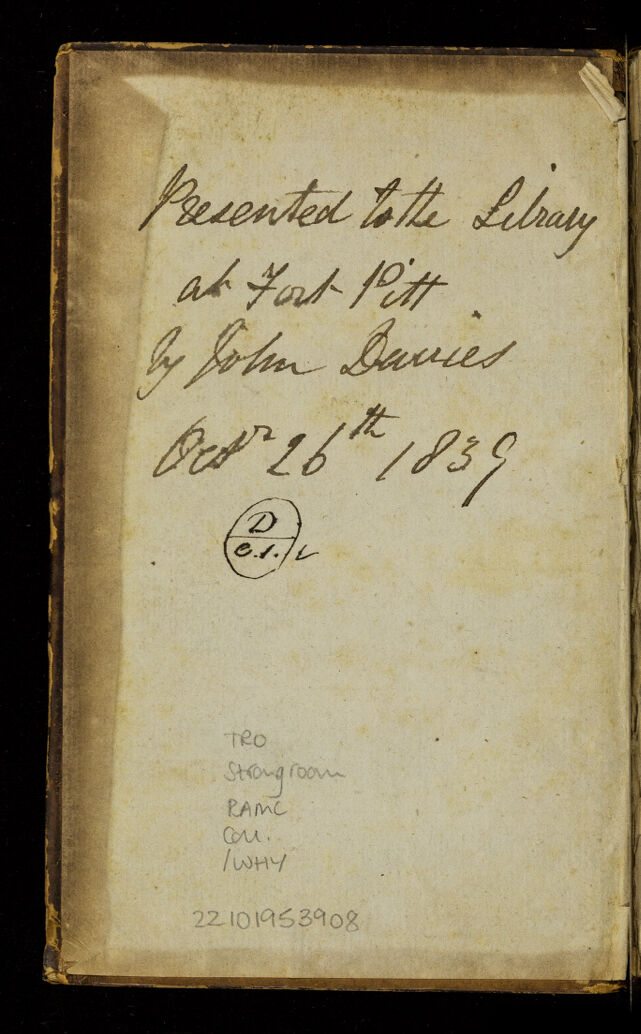 Presented to the Library
at Fort Pitt
by John Davies
Octr 26th 1839
D
e.1.
TRO
Strongroom
RAMC
Coll.
/WHY
22101953908